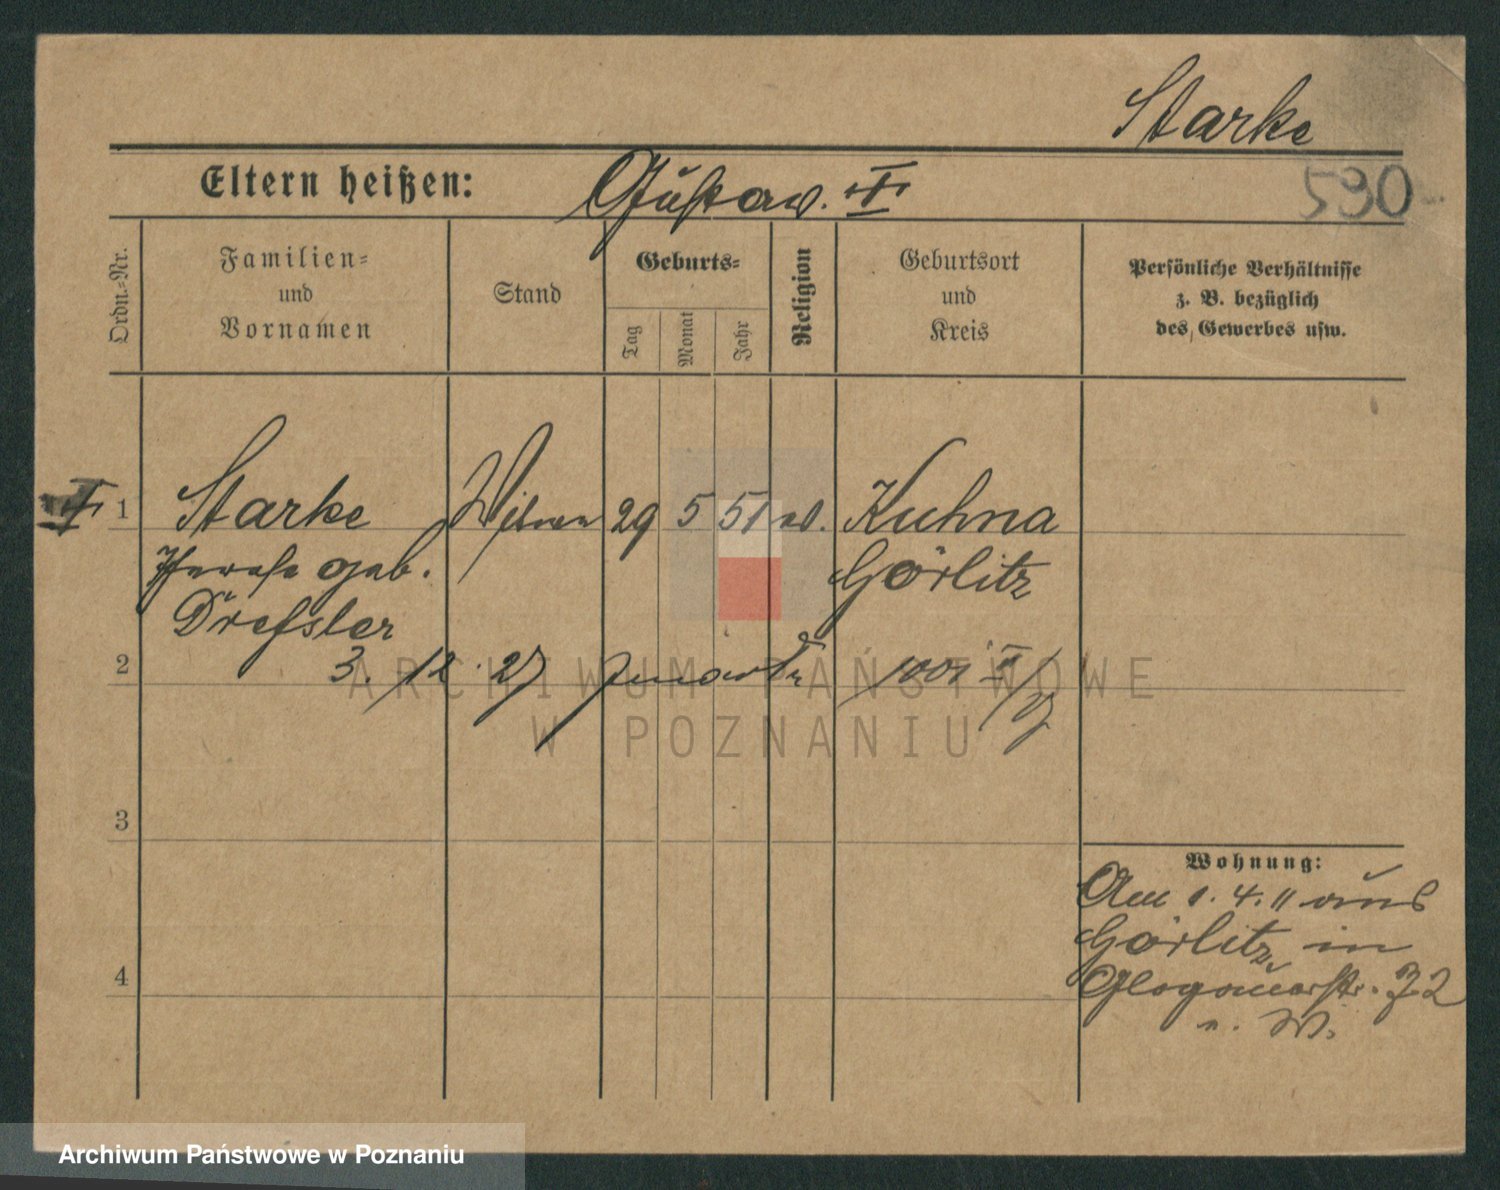 Starke
Eltern heißen: Gustav. †
590
Ordn.-Nr.
Familien-
und
Vornamen
Stand
Geburts-
Tag
Monat
Jahr
Religion
Geburtsort
und
Kreis
Persönliche Verhältnisse
z. B. bezüglich
des Gewerbes usw.
† 1 Starke Witwe 29 5 51 ev. Kuhna
geb. Görlitz
Dressler
2 3. 12. 27
ARCHIWUM PAŃSTWOWE
W POZNANIU
3
Wohnung:
Am 1. 4. 11 aus
Görlitz in
Glogauerstr. 72
4
Archiwum Państwowe w Poznaniu